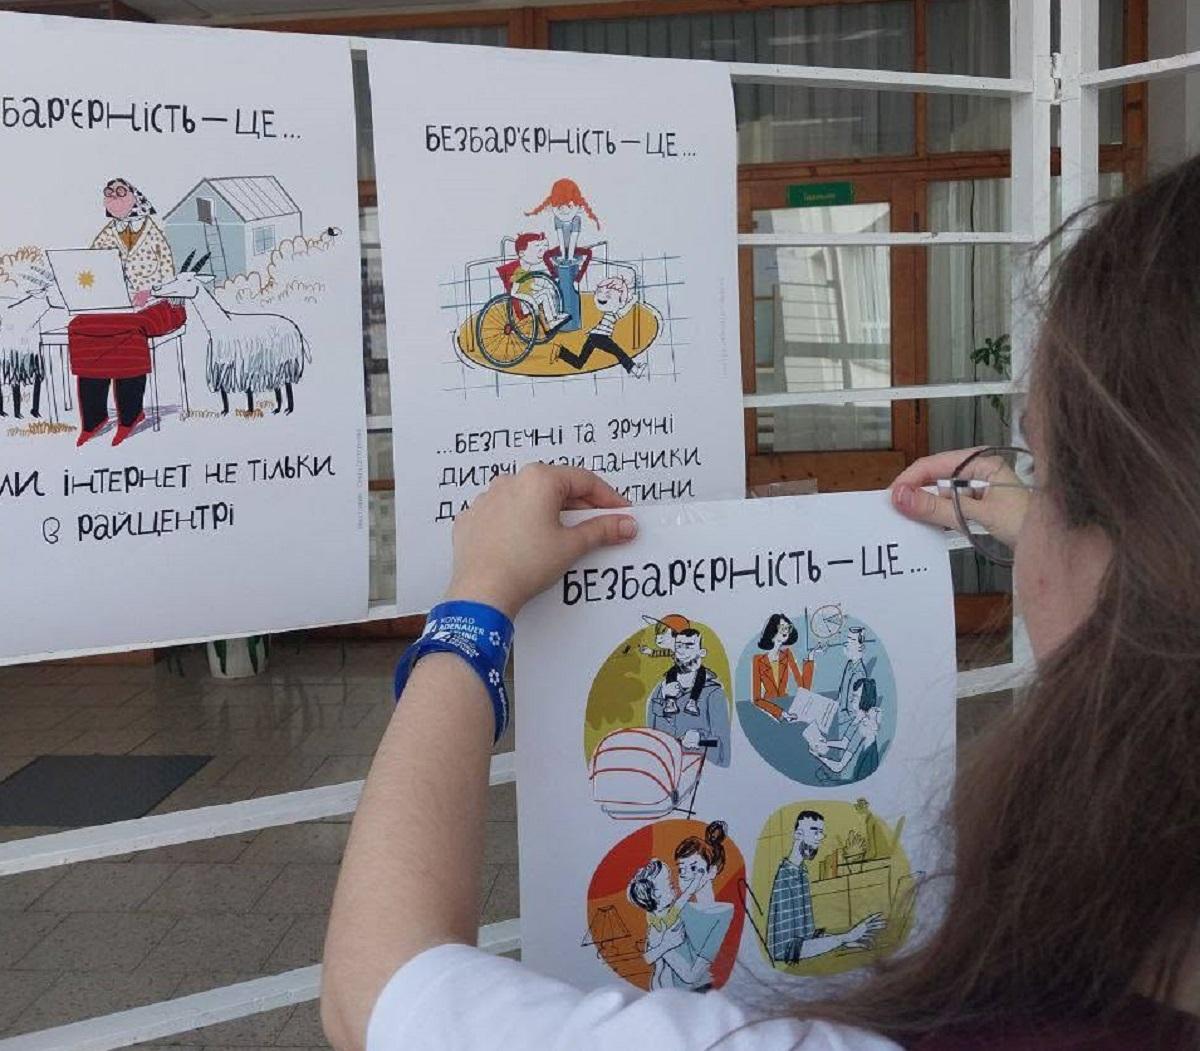 БАР'ЄРНІСТЬ — ЦЕ...
ЛИ ІНТЕРНЕТ НЕ ТІЛЬКИ
В РАЙЦЕНТРІ
БЕЗБАР'ЄРНІСТЬ — ЦЕ...
...БЕЗПЕЧНІ ТА ЗРУЧНІ
ДИТЯЧІ МАЙДАНЧИКИ
ИТИНИ
БЕЗБАР'ЄРНІСТЬ — ЦЕ...
KONRAD
ADENAUER